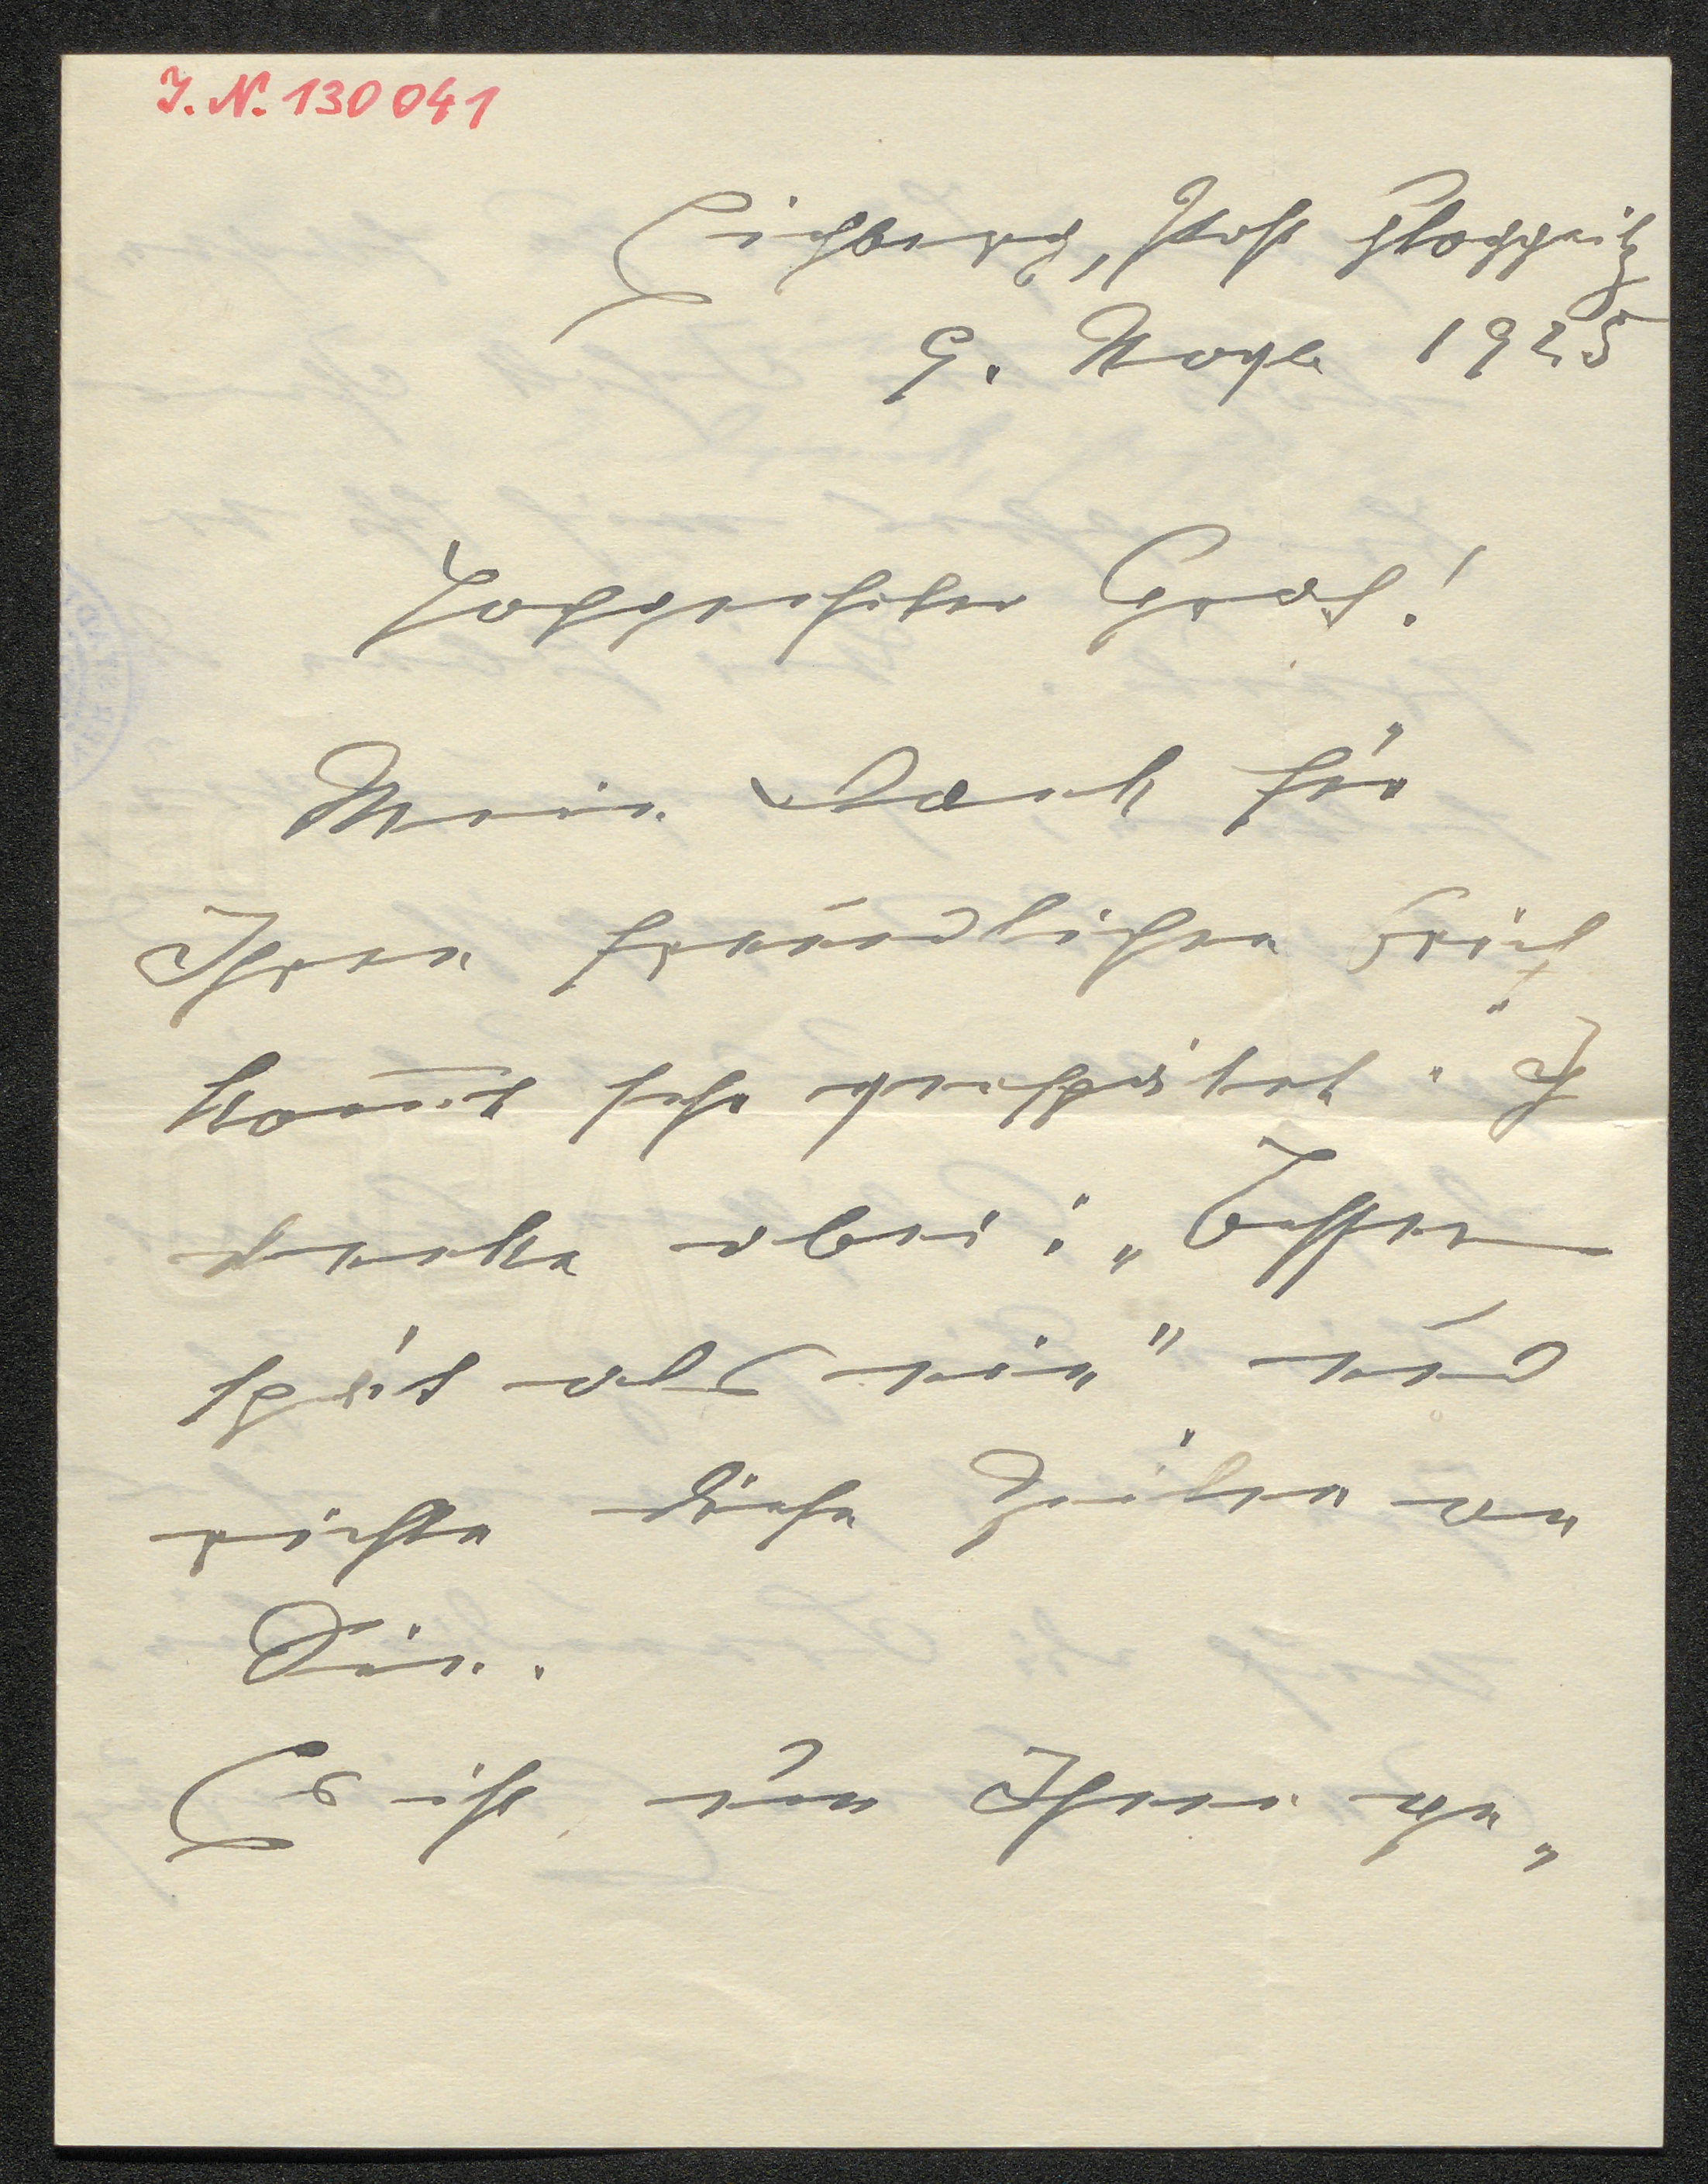 I. N. 130 041
Eichberg, Post Gloggnitz
9. Novbr 1925
Hochverehrter Graf!
Mein Dank für
Ihren freundlichen Brief
kommt sehr verspätet. Ich
denke aber: "Besser
spät als nie" und
richte diese Zeilen an
Sie.
Es ist nun Ihnen ge-